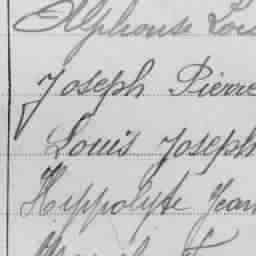 Alphonse Lou
Joseph Pierre
Louis Joseph
Hippolyte Jean